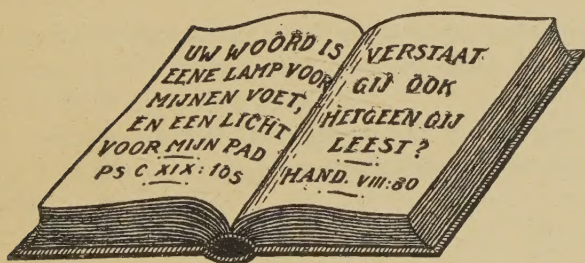 UW WOORD IS
EENE LAMP VOOR
MIJNEN VOET,
EN EEN LICHT
VOOR MIJN PAD
PS C XIX : 105
VERSTAAT
GIJ OOK
HETGEEN GIJ
LEEST?
HAND. VIII:30